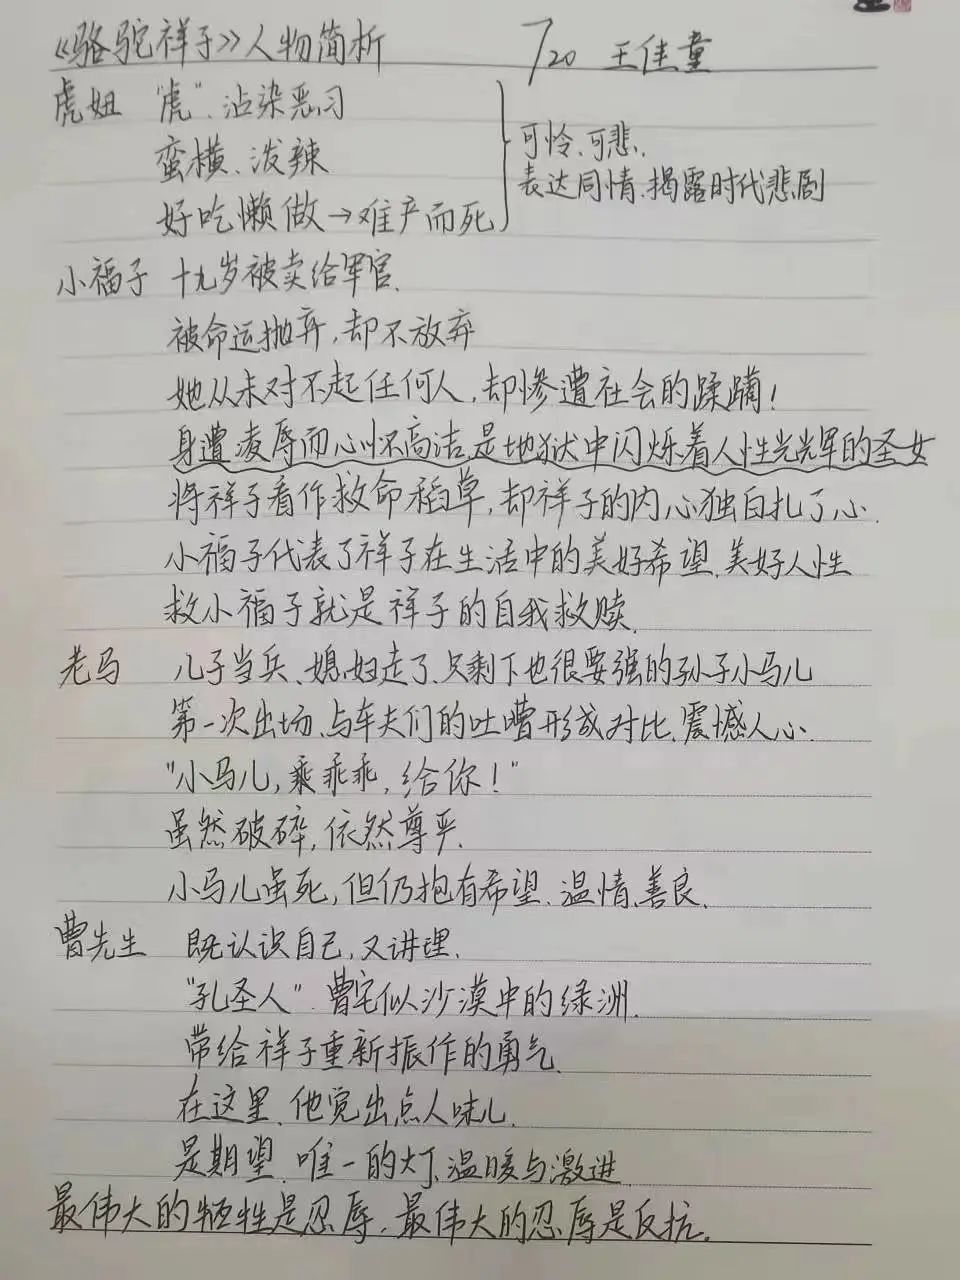 《骆驼祥子》人物简析 7/20 王佳童
虎妞 "虎".沾染恶习
蛮横、泼辣
好吃懒做→难产而死
可怜、可悲、
表达同情、揭露时代悲剧
小福子 十九岁被卖给军官.
被命运抛弃,却不放弃
她从未对不起任何人,却惨遭社会的蹂躏!
身遭凌辱而心怀高洁,是地狱中闪烁着人性光辉的圣女
将祥子看作救命稻草,却祥子的内心独白扎了心.
小福子代表了祥子在生活中的美好希望、美好人性
救小福子就是祥子的自我救赎.
老马 儿子当兵、媳妇走了、只剩下也很要强的孙子小马儿
第一次出场、与车夫们的吐嘈形成对比、震撼人心.
"小马儿,乘乖乖,给你!"
虽然破碎,依然尊严.
小马儿虽死,但仍抱有希望、温情、善良.
曹先生 既认识自己,又讲理.
"孔圣人".曹宅似沙漠中的绿洲.
带给祥子重新振作的勇气.
在这里、他觉出点人味儿.
是期望、唯一的灯、温暖与激进.
最伟大的牺牲是忍辱,最伟大的忍辱是反抗.